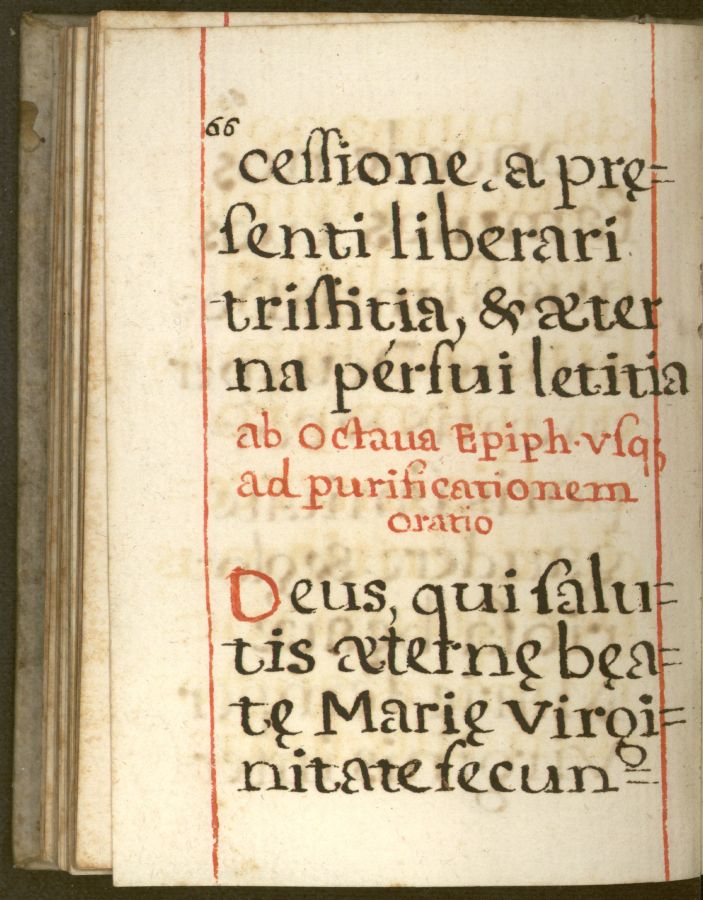 66
ceſſione, a prę=
ſenti liberari
triſtitia, & æter
na pérfui letitia
ab Octaua Epiph. vſq;
ad purificationem
oratio
Deus, qui ſalu=
tis æternę bęa=
tę Marię virgi=
nitate fecun=